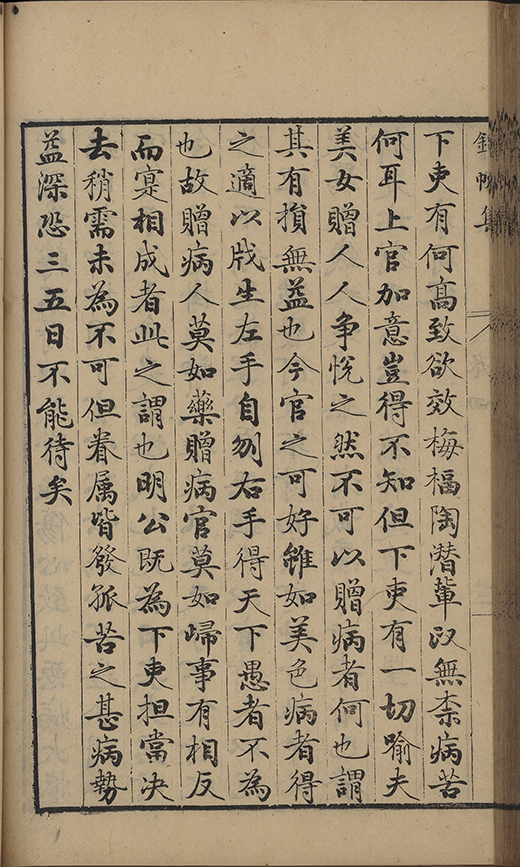 錦帆集
下吏有何高致欲效梅福陶潛輩政無柰病苦
何耳上官加意豈得不知但下吏有一切喻夫
美女贈人人爭悅之然不可以贈病者何也謂
其有損無益也今官之可好雖如美色病者得
之適以戕生左手自刎右手得天下愚者不為
也故贈病人莫如藥贈病官莫如歸事有相反
而寔相成者此之謂也明公既為下吏担當决
去稍需未為不可但眷属皆發孤苦之甚病勢
益深恐三五日不能待矣